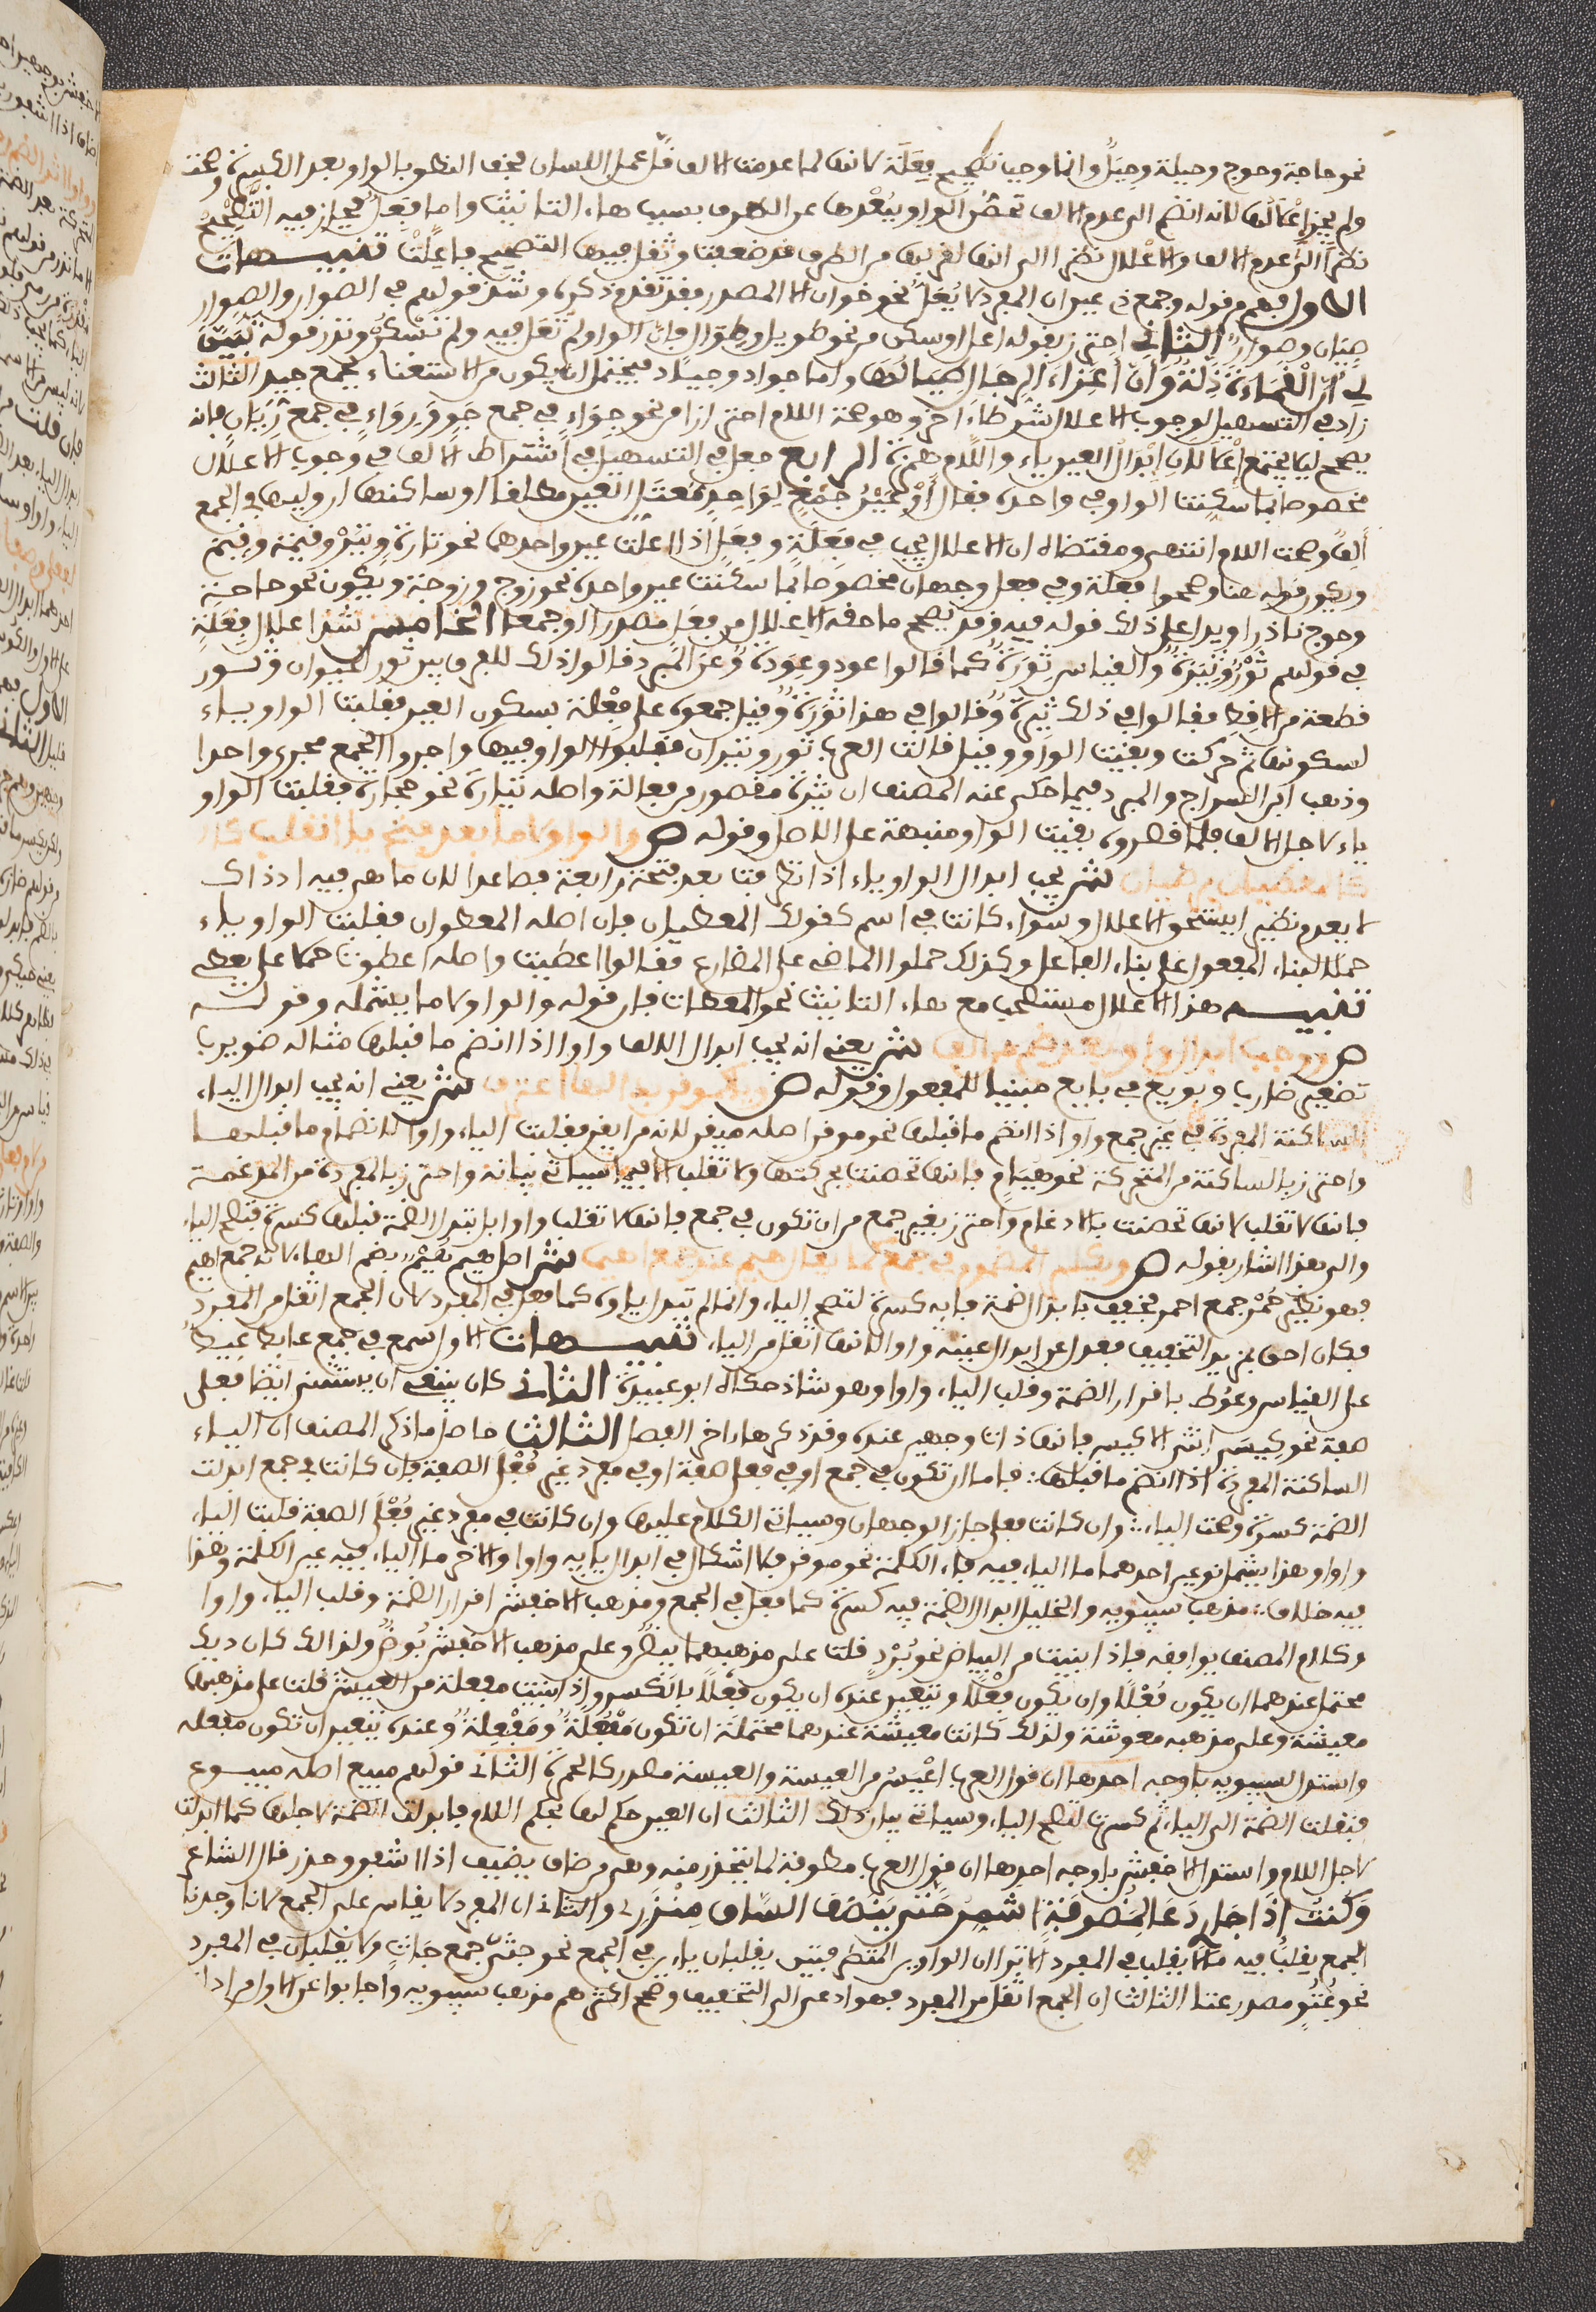 نحو حاجة وحوج وحيلة وحيل وانما وجب تصحيح فعلة لانه لما عدمت الالف قل عمل اللسان فخف النطق بالواو بعد الكسرة وصحت
ولم يجز اعلالها لانه انضم الى عدم الالف تحصن الواو ببعدها عن الطرف بسبب هاء التانيث واما فعل فجاز فيه التصحيح
نظرا الى عدم الالف والاعلال نظرا الى انها لقربها من الطرف قد ضعفت وثقل فيها التصحيح فاعلت تنبيهات
الاول فهم من قوله وجمع ذي عين ان المفرد لا يعل نحو خوان الا المصدر وقد تقدم ذكره وشذ قولهم في الصوار والصوار
صيان وصوار الثاني احترز بقوله اعل او سكن من نحو طويل وطوال فان الواو لم تعل فيه ولم تسكن وندر قوله تبين
لي ان القماءة ذلة وان اعزاء الرجال طيالها واما جواد وجياد فيحتمل ان يكون من الاستغناء بجمع جيد الثالث
زاد في التسهيل لوجوب الاعلال شرطا اخر وهو صحة اللام احترازا من نحو جواء في جمع جو ورواء في جمع ريان فانه
يصح ليلا يجتمع اعلالان ابدال العين ياء واللام همزة الرابع جعل في التسهيل في اشتراط الالف في وجوب الاعلال
مخصوصا بما سكنت الواو في واحده فقال او عين جمع لواحد معتل العين مطلقا او ساكنها ان وليها في الجمع
الف وصحت اللام انتهى ومقتضاه ان الاعلال يجب في فعلة وفعل اذا اعلت عين واحدهما نحو تارة وتير وقيمة وقيم
ويكون قوله هنا وصححوا فعلة وفي فعل وجهان مخصوصا بما سكنت عين واحده نحو زوج وزوجة ويكون نحو حاجة
وحوج نادرا ويدل على ذلك قوله فيه وقد يصح ما حقه الاعلال من فعل مصدرا او جمعا الخامس شذ اعلال فعلة
في قولهم ثور وثيرة والقياس ثورة كما قالوا عود وعودة وعن المبرد قالوا ذلك للفرق بين ثور الحيوان وثور
قطعة من الاقط فقالوا في ذلك ثيرة وقالوا في هذا ثورة وقيل جمعوه على فعلة بسكون العين فقلبت الواو ياء
لسكونها ثم حركت وبقيت الواو وقيل قالت العرب ثور وثيران فقلبوا الواو فيها واجروا الجمع مجرى واحدا
وذهب ابن السراج والمبرد فيما حكى عنه المصنف ان ثيرة مقصور من فعالة واصله ثيارة نحو حجارة فقلبت الواو
ياء لاجل الالف فلما قصروه بقيت الواو منبهة على الاصل وقوله ص والواو لاما بعد فتح يا انقلب كال
كالمعطيان يرضيان ش يجب ابدال الواو ياء اذا تطرفت بعد فتحة رابعة فصاعدا لان ما هي فيه اذ ذاك
لا يعدم نظيرا يستحق الاعلال سواء كانت في اسم كقولك المعطيان فان اصله المعطوان فقلبت الواو ياء
حملا لبناء المفعول على بناء الفاعل وكذلك حملوا الماضي على المضارع فقالوا اعطيت واصله اعطوت حملا على يعطي
تنبيه هذا الاعلال مستصحب مع هاء التانيث نحو المعطاة فان قوله والواو لاما يشمله وقوله
ص ووجب ابدال واو بعد ضم من الف ش يعني انه يجب ابدال الالف واوا اذا انضم ما قبلها مثاله ضويرب
تصغير ضارب وبويع في بايع مبنيا للمفعول وقوله ص ويا كموقن بذا لها اعترف ش يعني انه يجب ابدال الياء
الساكنة المفردة في غير جمع واوا اذا انضم ما قبلها نحو موقن اصله ميقن لانه من ايقن فقلبت الياء واوا لانضمام ما قبلها
واحترز بالساكنة من المتحركة نحو هيام فانها تحصنت بحركتها ولا تقلب الا فيما سياتي بيانه واحترز بالمفردة من المدغمة
فانها لا تقلب لانها تحصنت بالادغام واحترز بغير جمع من ان تكون في جمع فانها لا تقلب واوا بل تبدل الضمة قبلها كسرة فتصح الياء
والى هذا اشار بقوله ص ويكسر المضموم في جمع كما يقال هيم عند جمع اهيما ش اصل هيم هيم بضم الهاء لانه جمع اهيم
فهو نظير حمر جمع احمر فخفف بابدال الضمة فايه كسرة لتصح الياء وانما لم تبدل ياوه كما فعل في المفرد لان الجمع اثقل من المفرد
فكان احق بمزيد التخفيف فعدل عن ابدال عينه واوا لانها اثقل من الياء تنبيهات الاول سمع في جمع عايط عيط
على القياس وعوط باقرار الضمة وقلب الياء واوا وهو شاذ حكاه ابو عبيدة الثاني كان ينبغي ان يستثني ايضا فعلى
صفة نحو كيسى انثى الاكيس فانها ذات وجهين عنده وقد ذكرها اخر الفصل الثالث حاصل ما ذكر المصنف ان الياء
الساكنة المفردة اذا انضم ما قبلها فاما ان تكون في جمع او في فعلى صفة او في مفرد غير فعلى الصفة فان كانت في جمع ابدلت
الضمة كسرة وصحت الياء وان كانت فعلى جاز الوجهان وسياتي الكلام عليها وان كانت في مفرد غير فعلى الصفة قلبت الياء
واوا وهذا يشمل نوعين احدهما ما الياء فيه فاء الكلمة نحو موقن فلا اشكال في ابدال يايه واوا والاخر ما الياء فيه عين الكلمة وهذا
فيه خلاف مذهب سيبويه والخليل ابدال الضمة فيه كسرة كما فعل في الجمع ومذهب الاخفش اقرار الضمة وقلب الياء واوا
وكلام المصنف يوافقه فاذا ابنيت من البياض نحو برد قلت على مذهبهما بيض وعلى مذهب الاخفش بوض ولذلك كان ديك
محتملا عندهما ان يكون فعلا وان يكون فعلا ويتعين عنده ان يكون فعلا بالكسر واذا بنيت مفعلة من العيشة قلت على مذهبهما
معيشة وعلى مذهبه معوشة ولذلك كانت معيشة عندهما محتملة ان تكون مفعلة ومفعلة وعنده يتعين ان تكون مفعلة
واستدل لسيبويه باوجه احدها ان قول العرب اعيس من العيسة والعيسة مصدر كالحمرة الثاني قولهم مبيع اصله مبيوع
فنقلت الضمة الى الياء ثم كسرت لتصح الياء وسياتي بيان ذلك الثالث ان العين حكم لها بحكم اللام فابدلت الضمة لاجلها كما ابدلت
لاجل اللام واستدل الاخفش باوجه احدها ان قول العرب مضوفة لما يحذر منه وهي من ضاف يضيف اذا اشفق وحذر قال الشاعر
وكنت اذا جاري دعا لمضوفة اشمر حتى ينصف الساق مئزري والثاني ان المفرد لا يقاس على الجمع لانا وجدنا
الجمع يقلب فيه ما لا يقلب في المفرد الا ترى ان الواوين المتطرفتين يقلبان ياءين في الجمع نحو جثي جمع جاث ولا يقلبان في المفرد
نحو عتو مصدر عتا الثالث ان الجمع اثقل من المفرد فهو ادعى الى التخفيف وصح اكثرهم مذهب سيبويه واجابوا عن الاول من ادلة